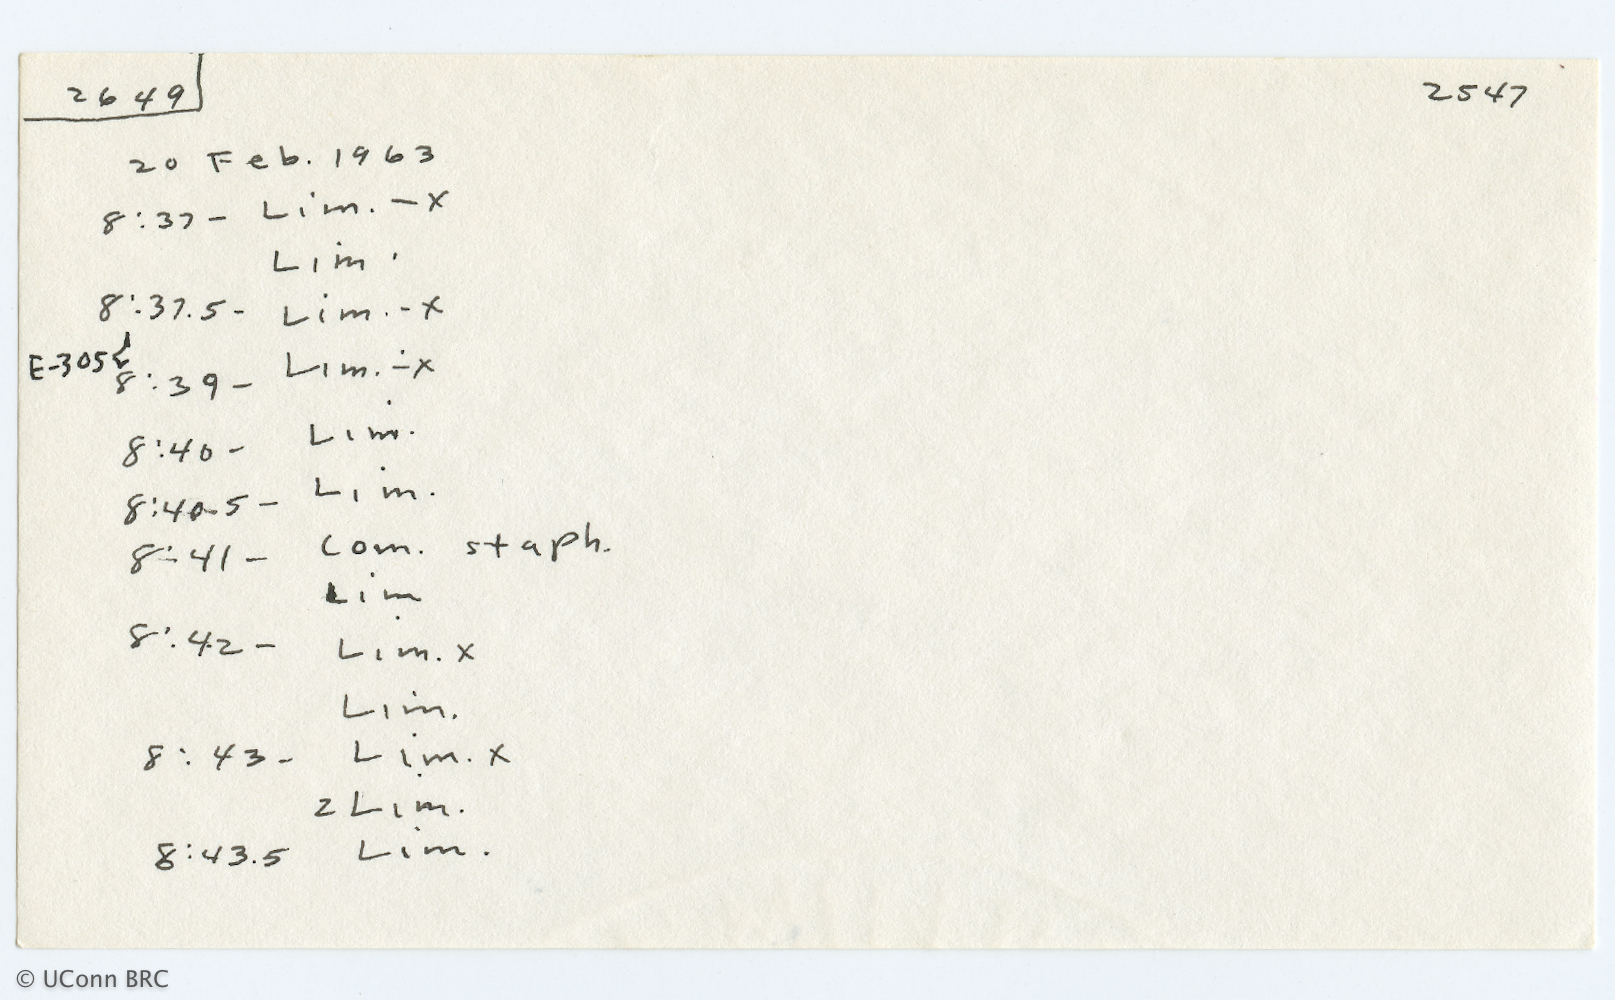 2649
2547
20 Feb. 1963
8:37- Lim. -x
Lim.
8:37.5- Lim. -x
E-305 8:39- Lim. -x
8:40- Lim.
8:40.5- Lim.
8:41- Com. staph.
Lim
8:42- Lim. x
Lim.
8:43- Lim. x
2 Lim.
8:43.5 Lim.
© UConn BRC